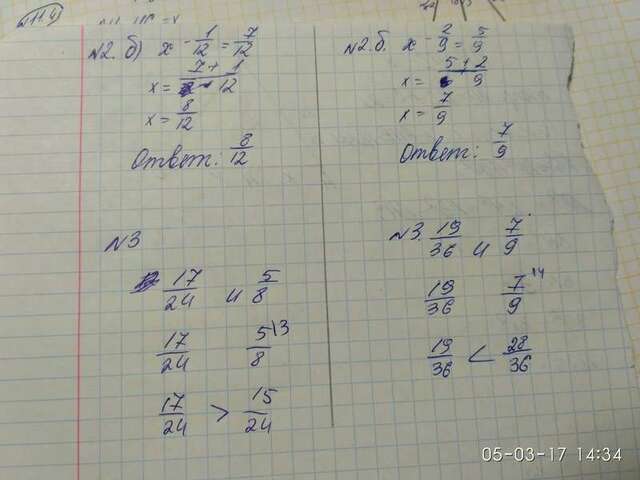 №2. б) x - 1/12 = 7/12
x = 7 + 1 / 12
x = 8/12
Ответ: 8/12
№3
17/24 и 5/8
17/24 5/8 \3
17/24 > 15/24
№2. б. x - 2/9 = 5/9
x = 5 + 2 / 9
x = 7/9
Ответ: 7/9
№3. 19/36 и 7/9
19/36 7/9 \4
19/36 < 28/36
05-03-17 14:34